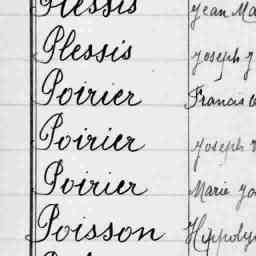 Plessis Jean
Plessis Joseph
Poirier Francis
Poirier Joseph
Poirier Marie
Poisson